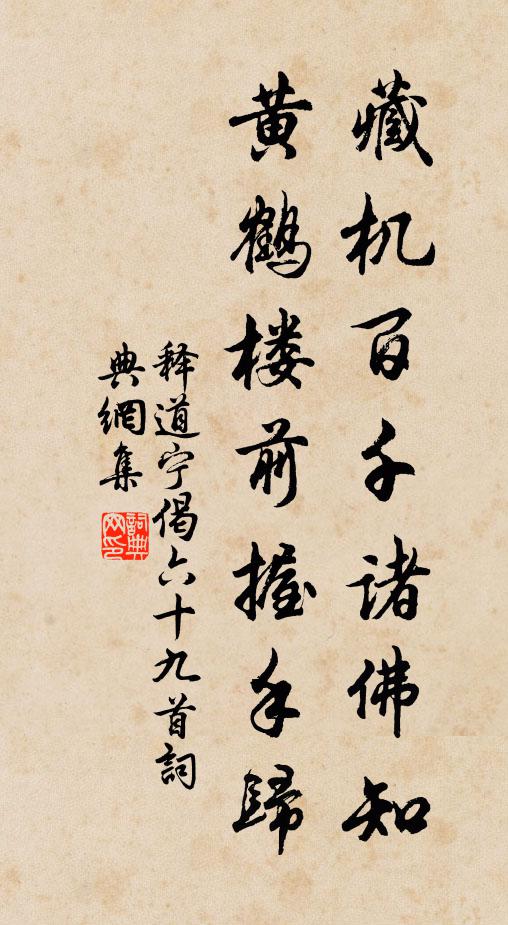 藏机百千诸佛知
黄鹤楼前握手歸
释道宁偈六十九首詞
典網集
詞典网印